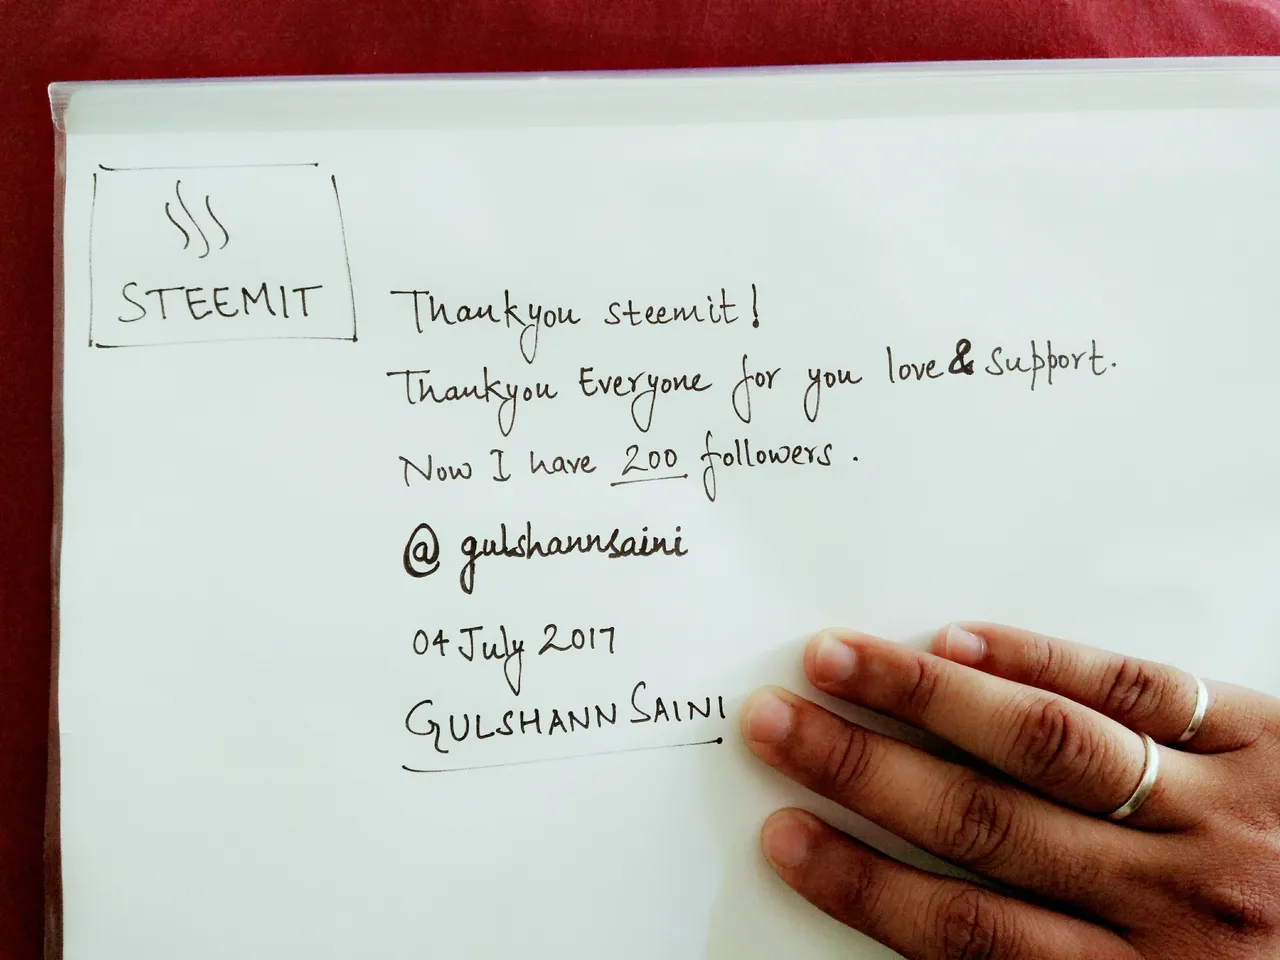 STEEMIT
Thankyou steemit!
Thankyou Everyone for you love & support.
Now I have 200 followers.
@ gulshannsaini
04 July 2017
GULSHANN SAINI